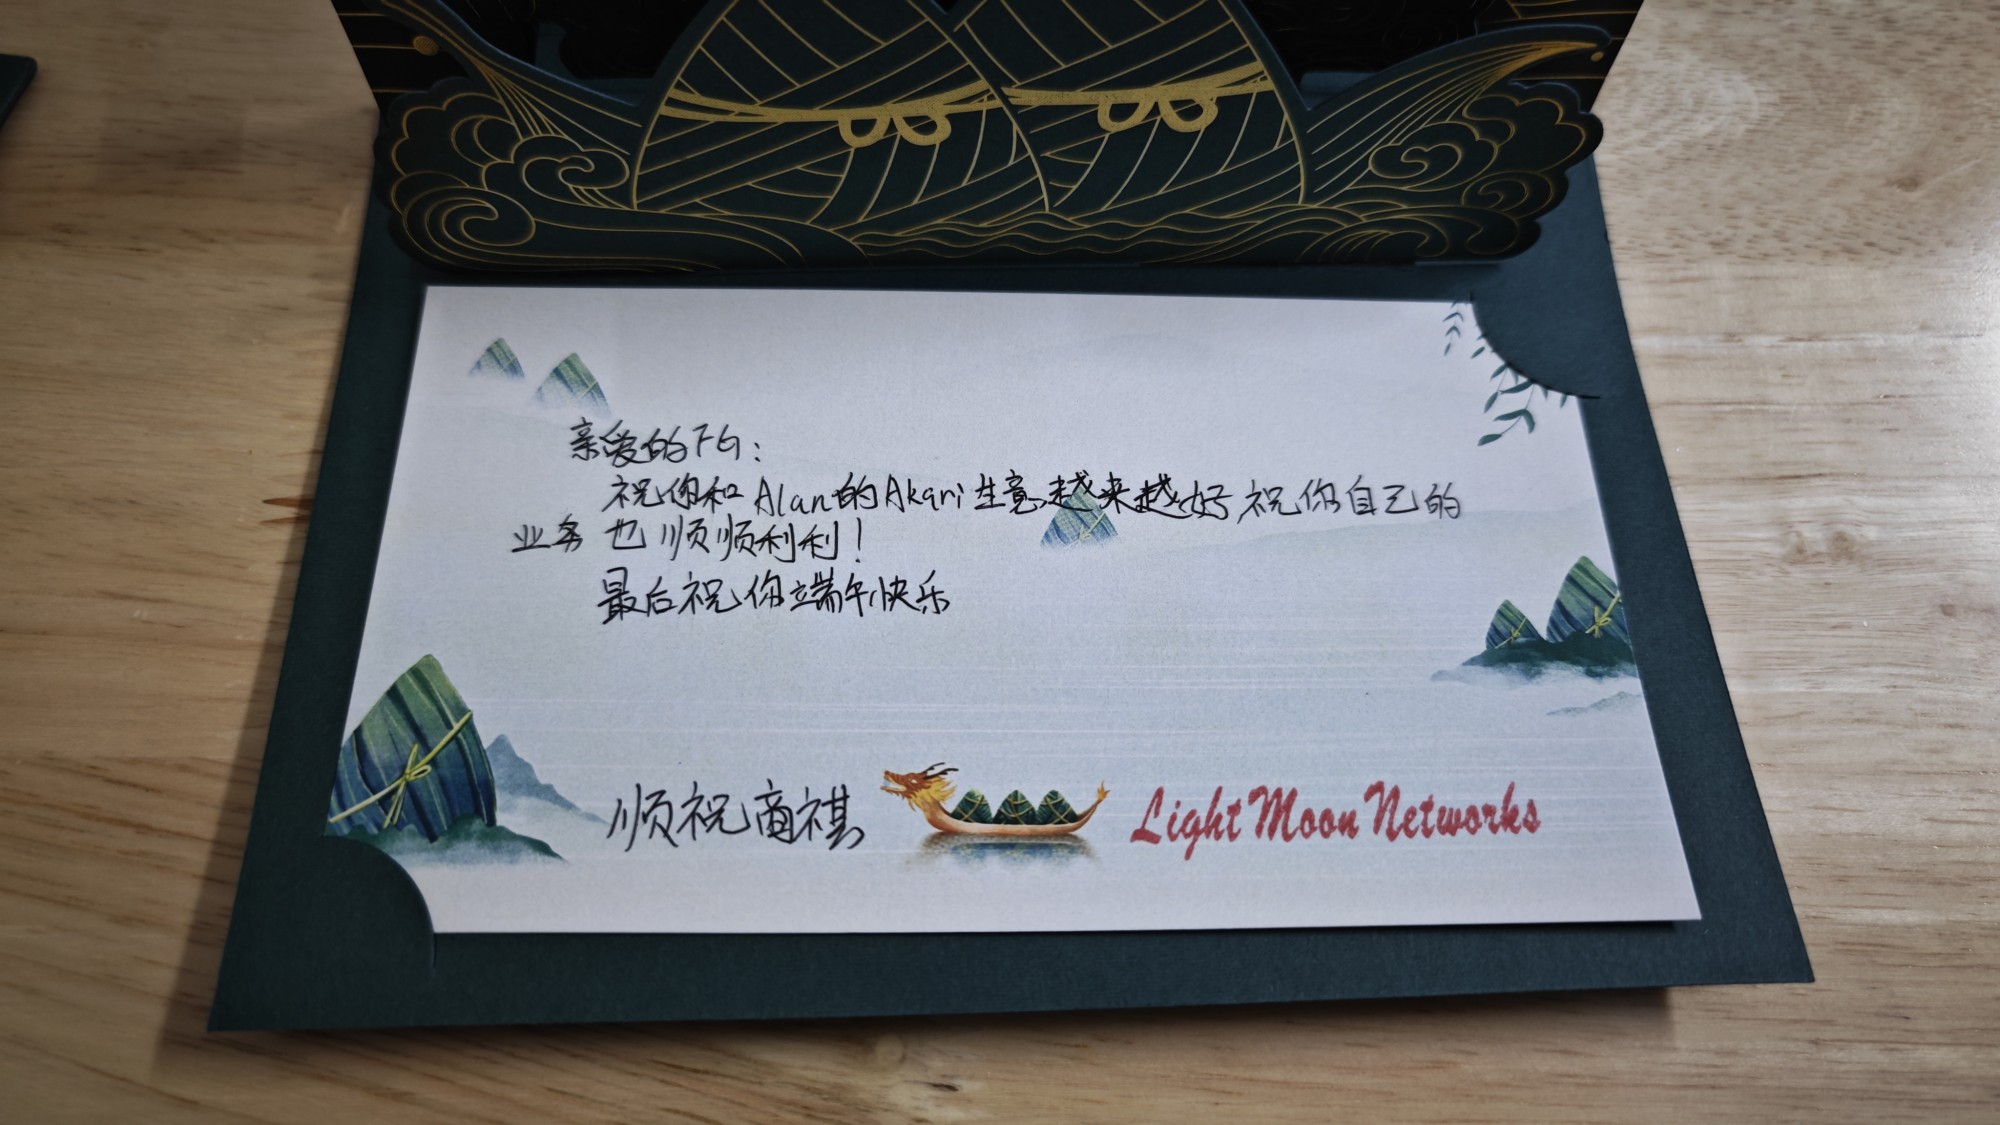 亲爱的FG：
祝你和Alan的Akari生意越来越好 祝你自己的
业务也顺顺利利！
最后祝你端午快乐
顺祝商祺
Light Moon Networks